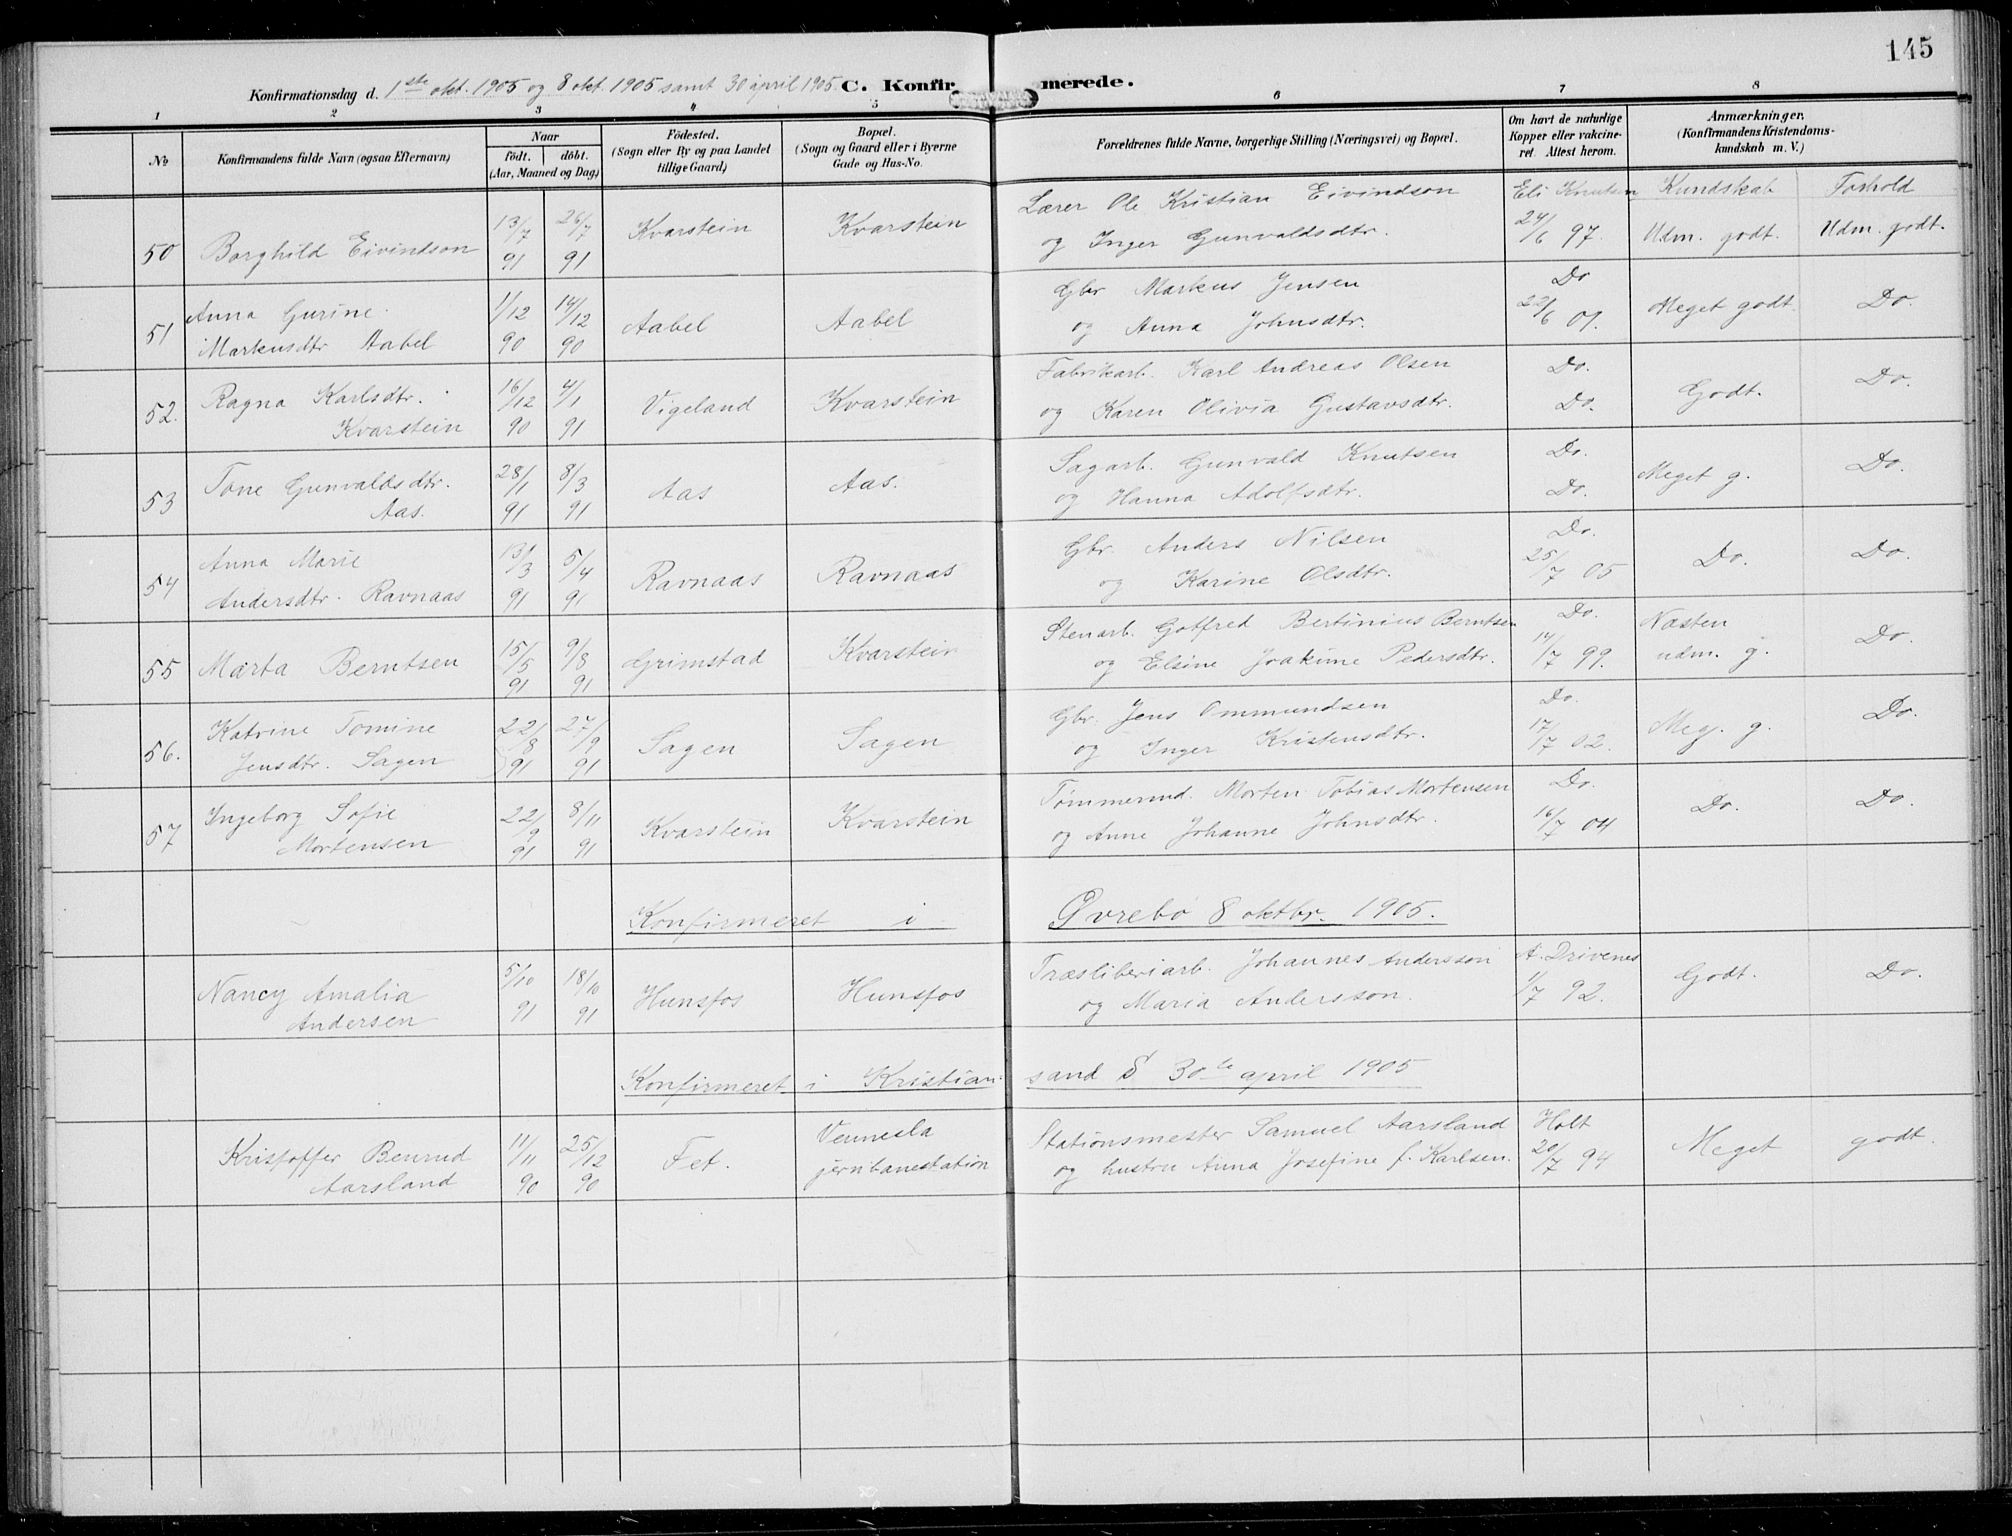 145
Konfirmationsdag d. 1ste okt. 1905 og 8 okt. 1905 samt 30 april 1905. C. Konfirmerede.
1 2 3 4 5 6 7 8
No
Konfirmandens fulde Navn (ogsaa Efternavn)
Naar
födt. döbt.
(Aar, Maaned og Dag)
Födested.
(Sogn eller By og paa Landet
tillige Gaard)
Bopæl.
(Sogn og Gaard eller i Byerne
Gade og Hus-No.
Forældrenes fulde Navne, borgerlige Stilling (Næringsvei) og Bopæl.
Om havt de naturlige
Kopper eller vakcine-
ret. Attest herom.
Anmærkninger.
(Konfirmandens Kristendoms-
kundskab m. V.)
Kundskab Forhold
50 Borghild Eivindson 13/7 91 26/7 91 Kvarstein Kvarstein Lærer Ole Kristian Eivindson
og Inger Gunvaldsdtr. Eli Knutsen 24/6 97. Udm. godt. Udm. godt.
51 Anna Gurine
Markusdtr Aabel 1/12 90 14/12 90 Aabel Aabel Gbr Markus Jensen
og Anna Johnsdtr. Do 22/6 01. Meget godt. Do.
52. Ragna Karlsdtr.
Kvarstein 16/12 90 4/1 91 Vigeland Kvarstein Fabrikarb. Karl Andreas Olsen
og Karen Olivia Gustavsdtr. Do. Do. Godt. Do.
53 Tone Gunvaldsdtr.
Aas. 28/1 91 8/3 91 Aas Aas. Sagarb. Gunvald Knutsen
og Hanna Adolfsdtr. Do. Do. Meget g. Do.
54 Anna Marie
Andersdtr. Ravnaas 13/3 91 5/4 91 Ravnaas Ravnaas Gbr. Anders Nilsen
og Karine Olsdtr. Do. 25/7 05 Do. Do.
55 Marta Berntsen 15/5 91 9/8 91 Grimstad Kvarstein Stenarb. Gotfred Bertinius Berntsen
og Elsine Joakime Pedersdtr. Do. 14/7 99. Næsten
udm. g. Do.
56. Katrine Tomine
Jensdtr. Sagen 22/8 91 27/9 91 Sagen Sagen Gbr. Jens Ommundsen
og Inger Kristensdtr. Do. 17/7 02. Meg. g. Do.
57 Ingeborg Sofie
Mortensen 22/9 91 8/11 91 Kvarstein Kvarstein Tømmermd. Morten Tobias Mortensen
og Anne Johanne Johnsdtr. Do. 16/7 04 Do. Do.
Konfirmeret i Øvrebø 8 oktbr. 1905.
Nancy Amalia
Andersen 5/10 91 18/10 91 Hunsfos Hunsfos Træsliberiarb. Johannes Andersson
og Maria Andersson. A. Drivenes 1/7 92. Godt. Do.
Konfirmeret i Kristiansand S 30te april 1905
Kristoffer Bernud
Aarsland 11/11 90 25/12 90 Fet. Vennesla
jernbanestation Stationsmester Samuel Aarsland
og hustru Anna Josefine f. Karlsen. Holt 20/7 94 Meget godt.